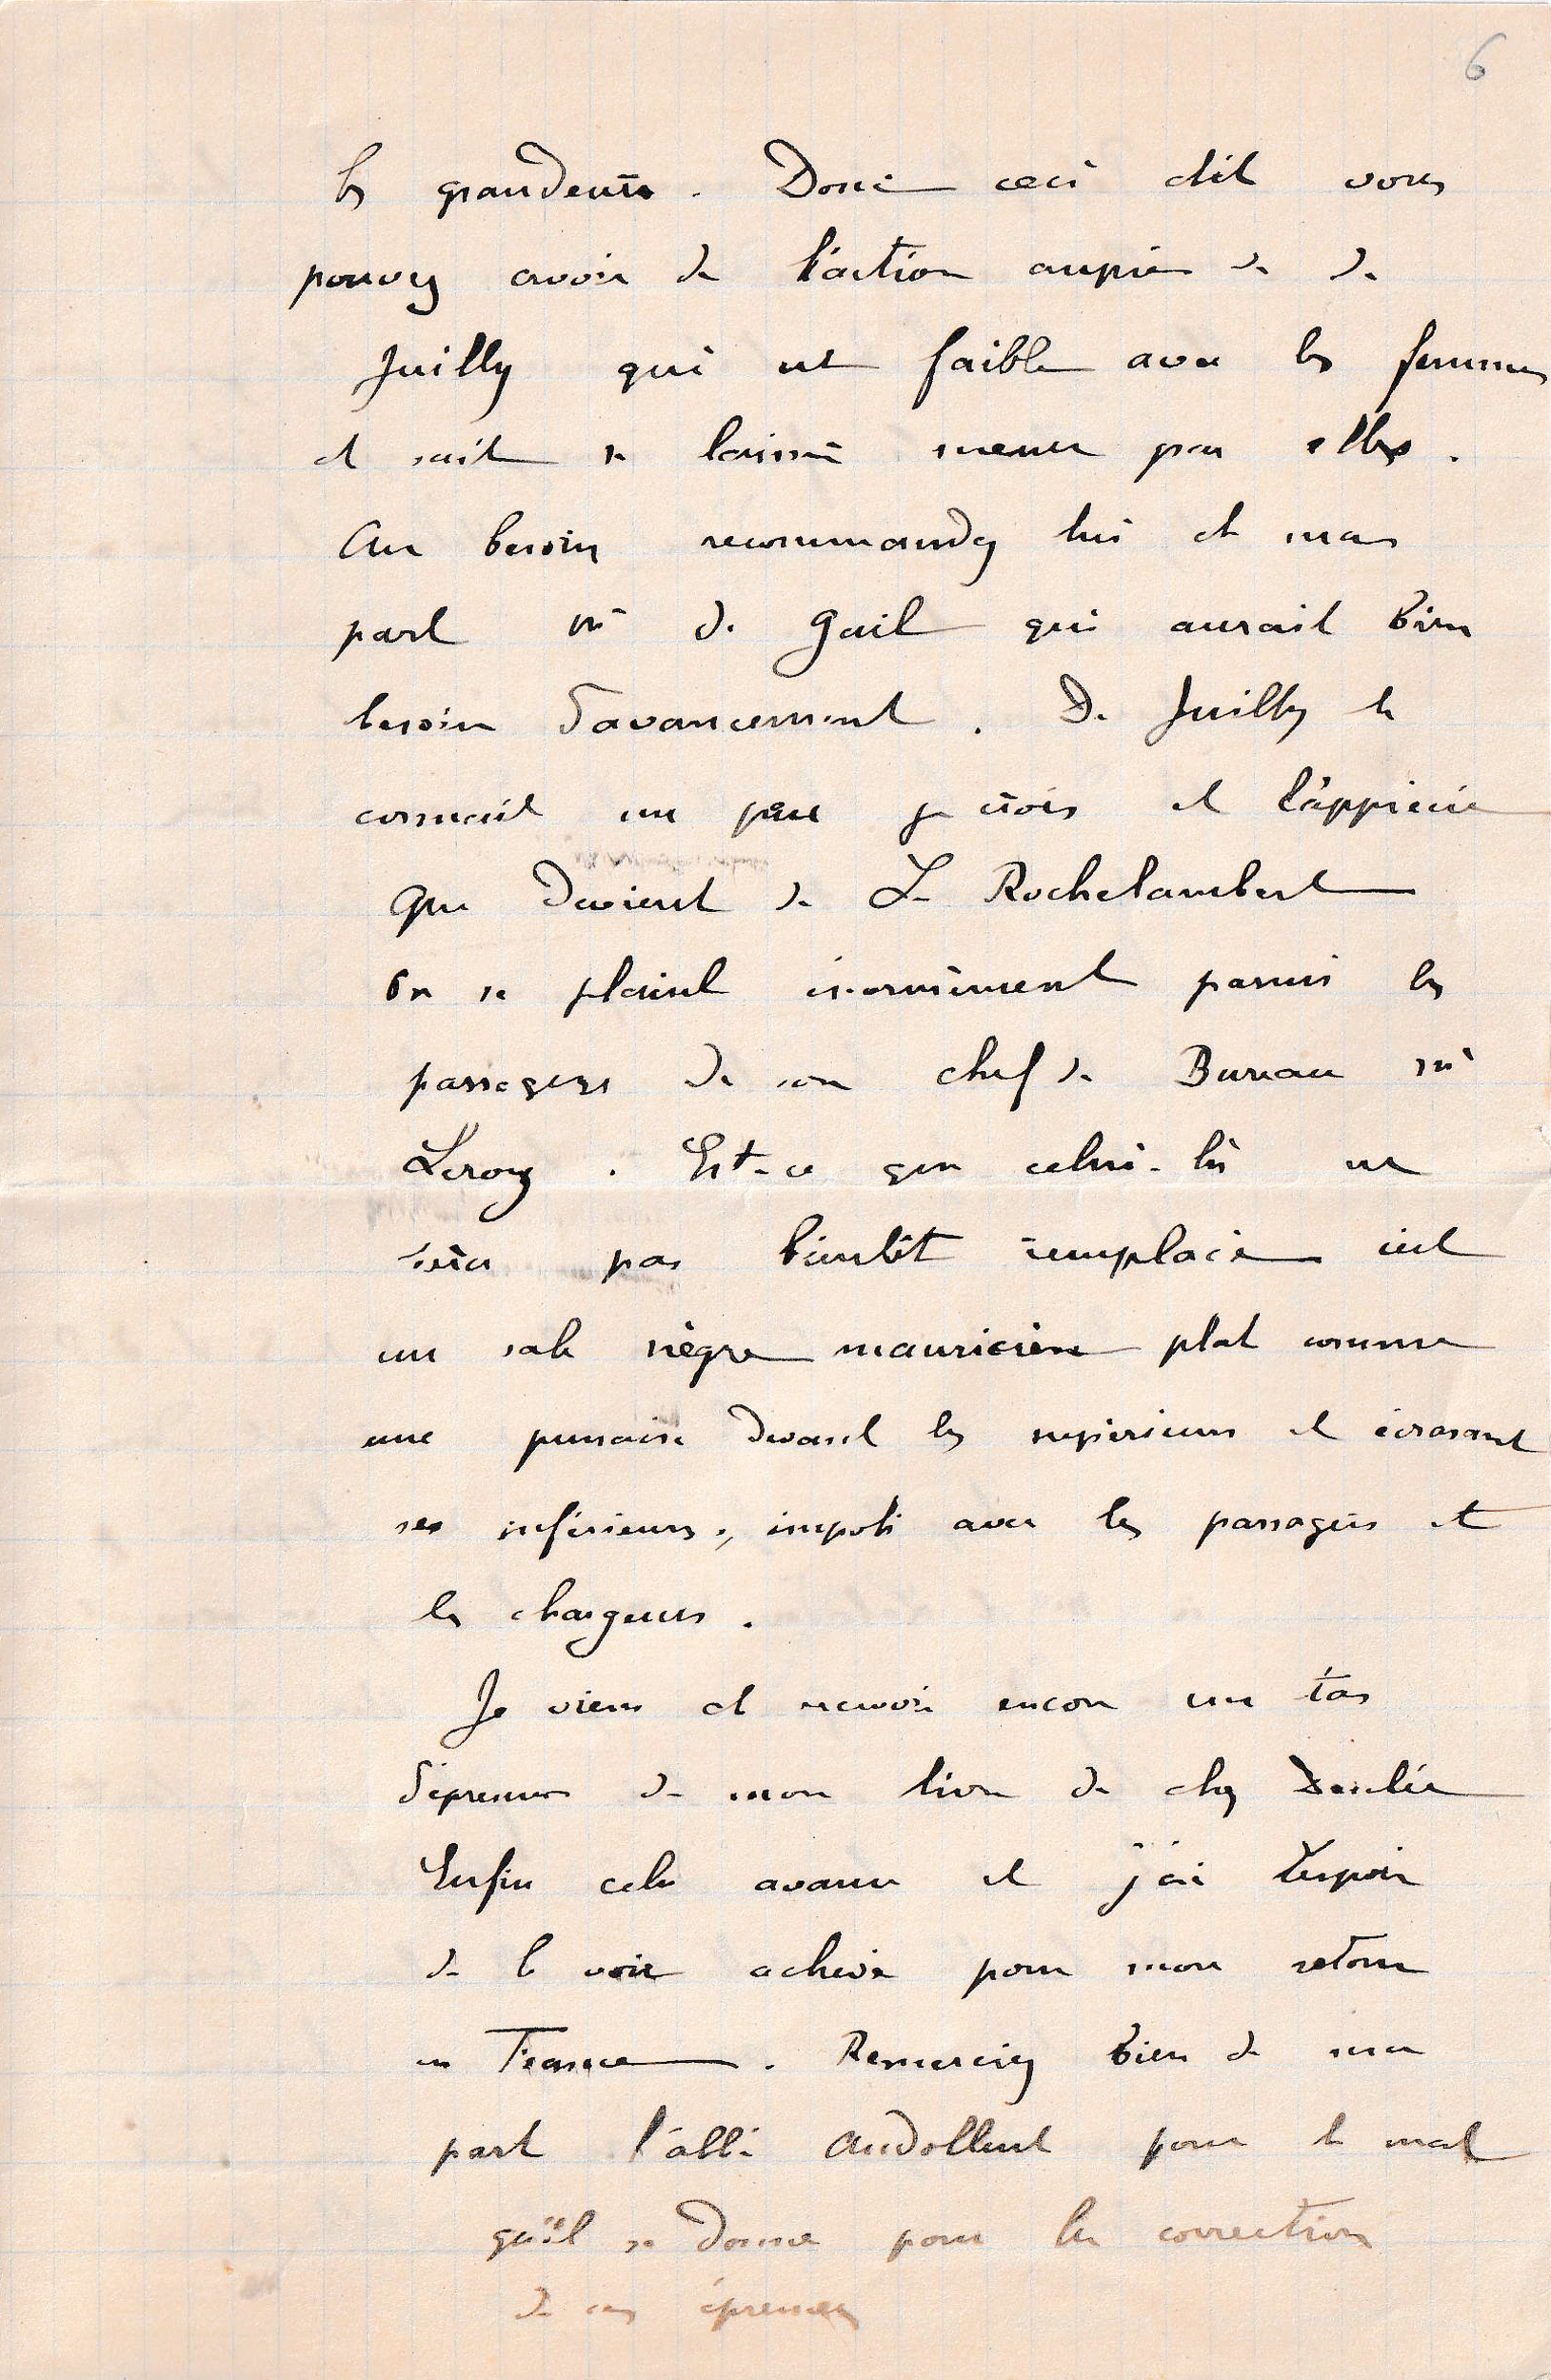 6
les grandeurs. Donc ceci dit vous
pouvez avoir de l'action auprès de de
Juilly qui est faible avec les femmes
et sait se laisser mener par elles.
Au besoin recommandez lui de ma
part Mr de Gail qui aurait bien
besoin d'avancement. De Juilly le
connait un peu je crois et l'apprécie
Que devient de La Rochelambert
On se plaint énormément parmi les
passagers de son chef de Bureau Mr
Leroy. Est-ce que celui-là ne
sera pas bientôt remplacé c'est
un sale nègre mauricien plat comme
une punaise devant les supérieurs et écrasant
ses inférieurs, impoli avec les passagers et
les chargeurs.
Je viens de recevoir encore un tas
d'épreuves de mon livre de chez
Enfin cela avance et j'ai l'espoir
de le voir achevé pour mon retour
en France. Remerciez bien de ma
part l'abbé Audollent pour le mal
qu'il se donne pour la correction
de ces épreuves